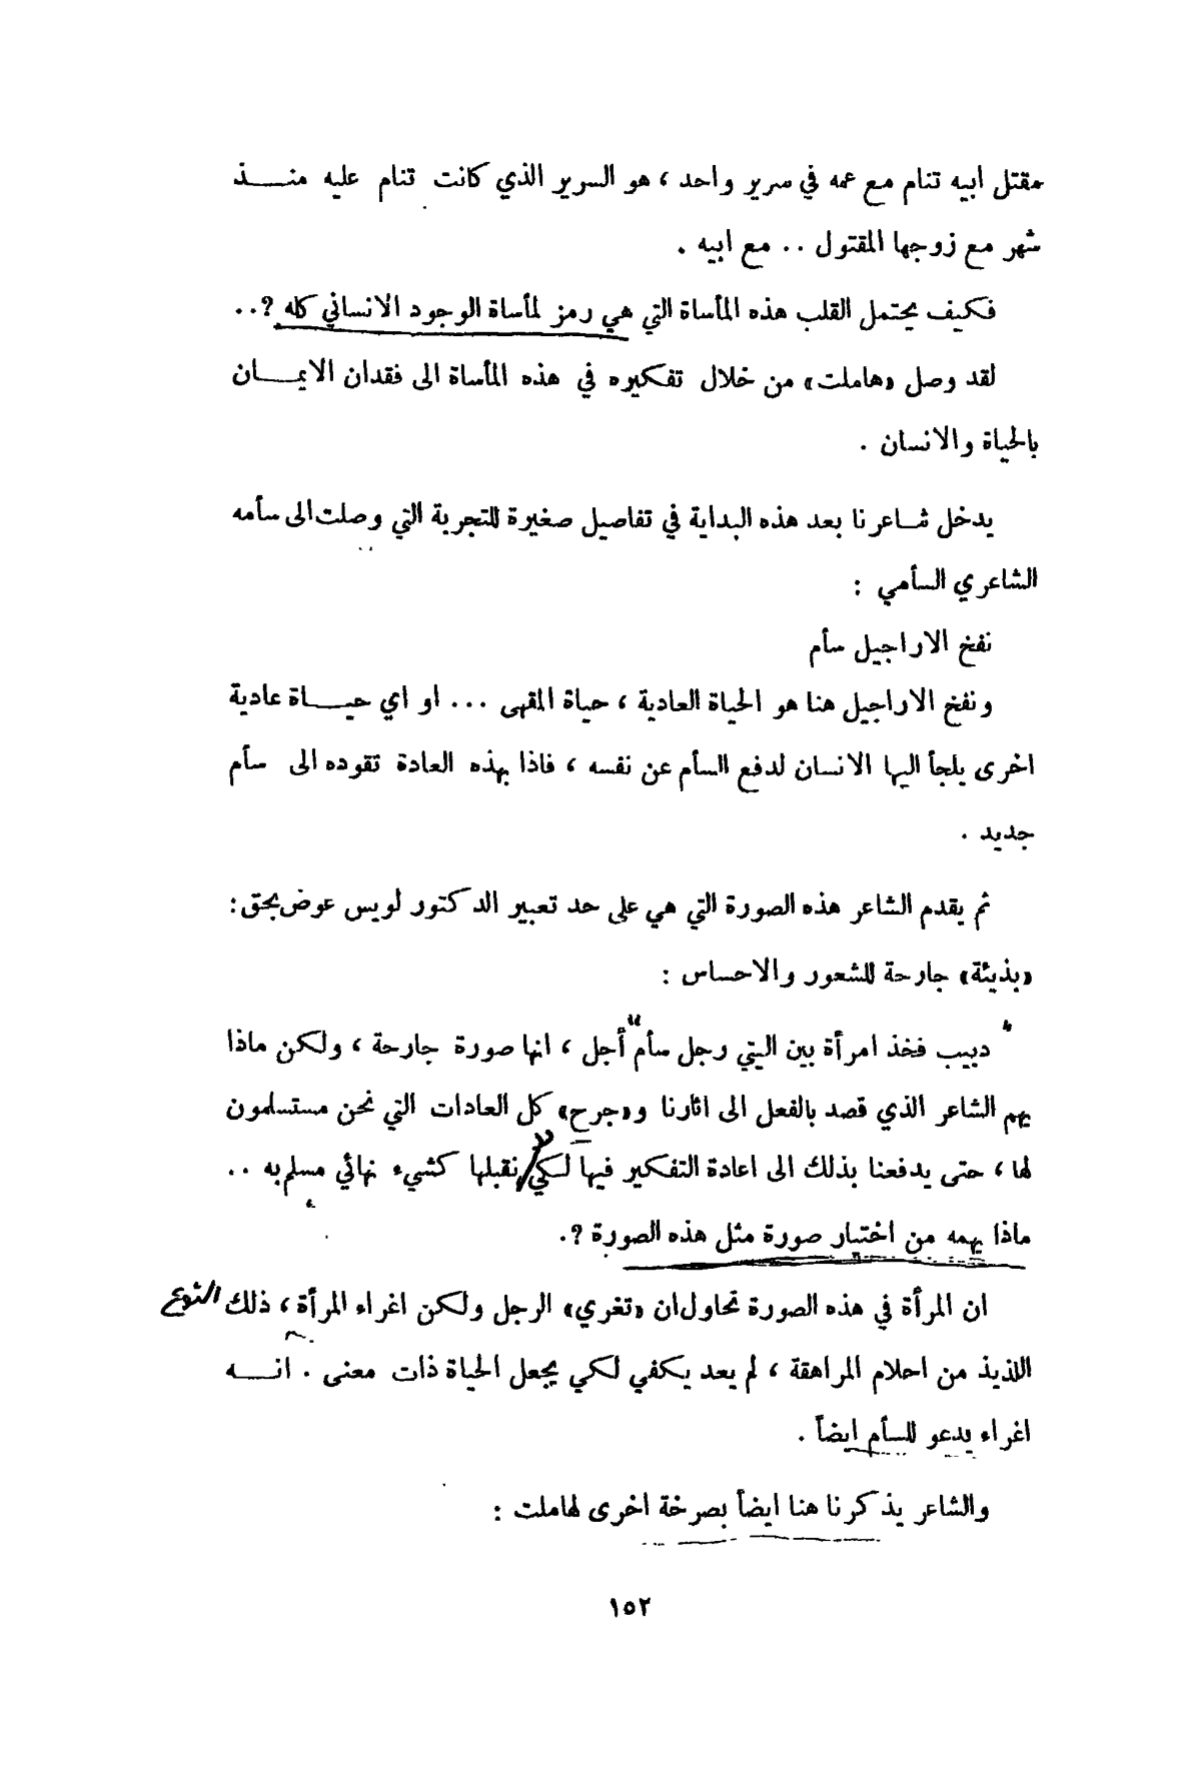 مقتل ابيه تنام مع عمه في سرير واحد ، هو السرير الذي كانت تنام عليه منـــذ
شهر مع زوجها المقتول .. مع ابيه .
فكيف يحتمل القلب هذه المأساة التي هي رمز لمأساة الوجود الانساني كله ?..
لقد وصل «هاملت» من خلال تفكيره في هذه المأساة الى فقدان الايمـــان
بالحياة والانسان .
يدخل شــاعرنا بعد هذه البداية في تفاصيل صغيرة للتجربة التي وصلت الى سأمه
الشاعري السأمي :
نفخ الاراجيل سأم
ونفخ الاراجيل هنا هو الحياة العادية ، حياة المقهى ... او اي حيـــاة عادية
اخرى يلجأ اليها الانسان لدفع السأم عن نفسه ، فاذا بهذه العادة تقوده الى سأم
جديد .
ثم يقدم الشاعر هذه الصورة التي هي على حد تعبير الدكتور لويس عوض بحق :
«بذيئة» جارحة للشعور والاحساس :
" دبيب فخذ امرأة بين اليتي رجل سأم " أجل ، انها صورة جارحة ، ولكن ماذا
يهم الشاعر الذي قصد بالفعل الى اثارنا و«جرح» كل العادات التي نحن مستسلمون
لها ، حتى يدفعنا بذلك الى اعادة التفكير فيها لكي لا نقبلها كشيء نهائي مسلم به ..
ماذا يهمه من اختيار صورة مثل هذه الصورة ?.
ان المرأة في هذه الصورة تحاول ان «تغري» الرجل ولكن اغراء المرأة ، ذلك النوع
اللذيذ من احلام المراهقة ، لم يعد يكفي لكي يجعل الحياة ذات معنى . انـــه
اغراء يدعو للسأم ايضاً .
والشاعر يذكرنا هنا ايضاً بصرخة اخرى لهاملت :
١٥٢